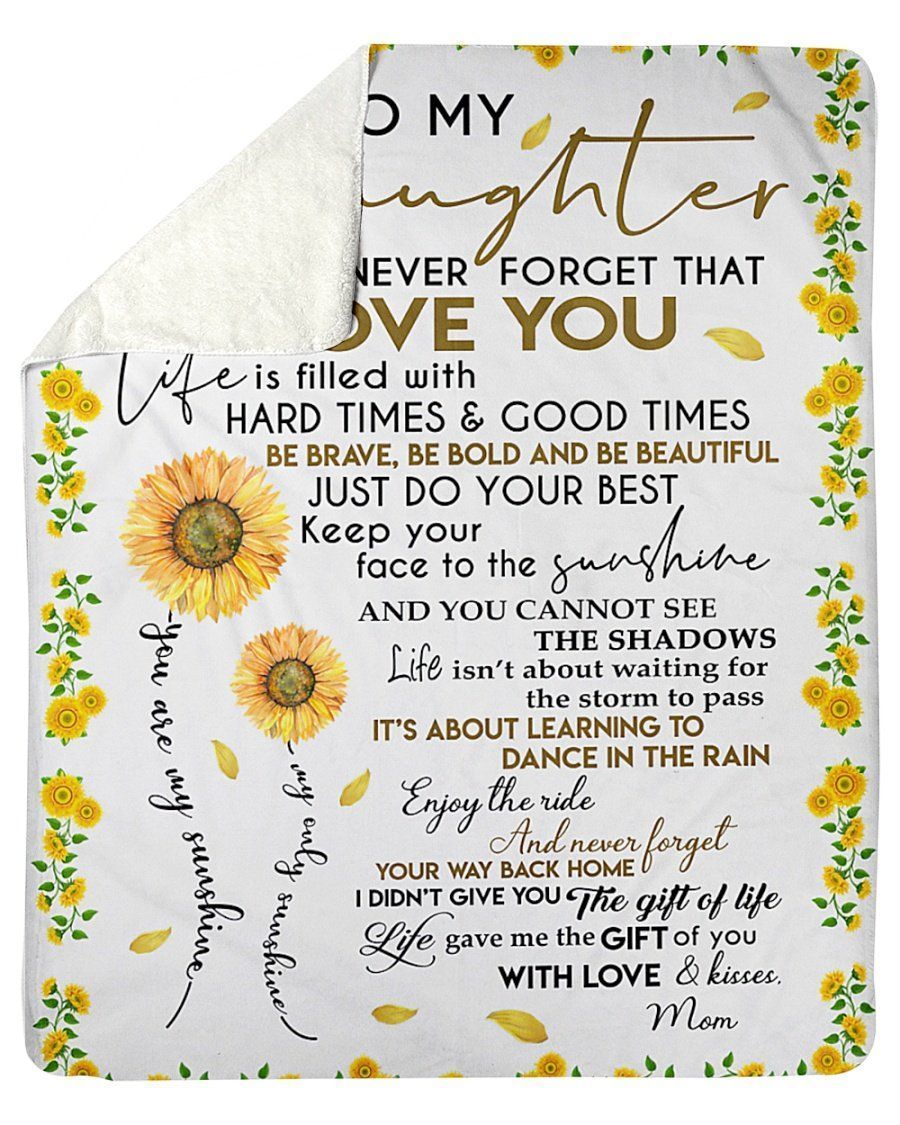 O MY
ughter
NEVER FORGET THAT
OVE YOU
Life is filled with
HARD TIMES & GOOD TIMES
BE BRAVE, BE BOLD AND BE BEAUTIFUL
JUST DO YOUR BEST
Keep your
face to the sunshine
AND YOU CANNOT SEE
THE SHADOWS
Life isn't about waiting for
the storm to pass
IT'S ABOUT LEARNING TO
DANCE IN THE RAIN
Enjoy the ride
And never forget
YOUR WAY BACK HOME
I DIDN'T GIVE YOU The gift of life
Life gave me the GIFT of you
WITH LOVE & kisses,
Mom
you are my sunshine
my only sunshine